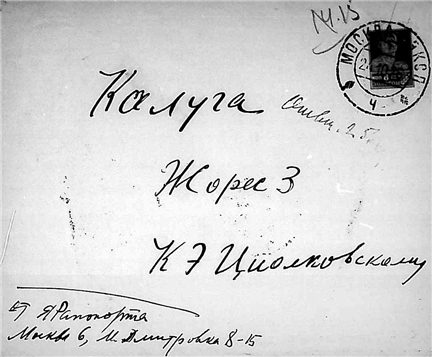 МОСКВА
Калуга
Жорес 3
К Э Циолковскому
от Я Рапопорта
Москва 6, М. Дмитровка 8-15